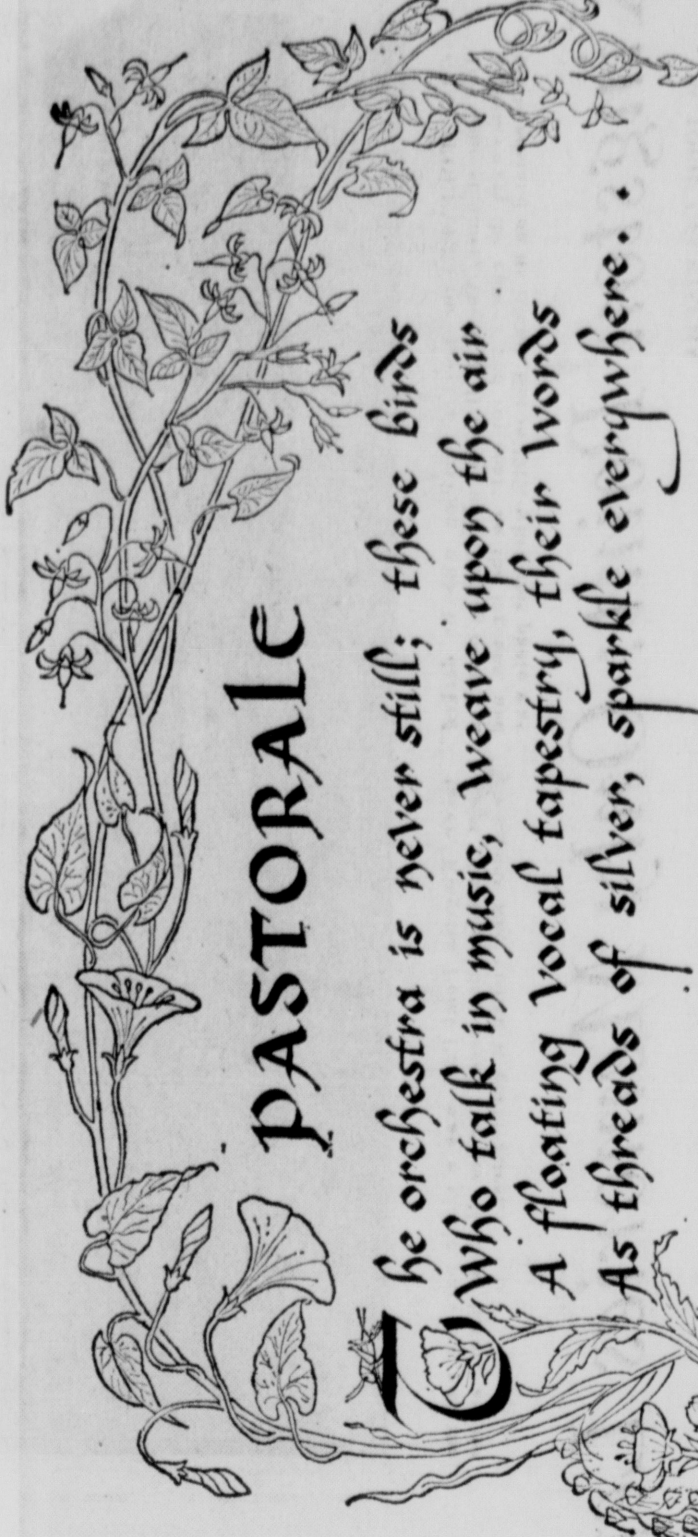 PASTORALE
The orchestra is never still; these birds
Who talk in music, weave upon the air
A floating vocal tapestry, their words
As threads of silver, sparkle everywhere. .